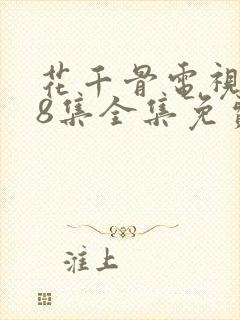 花千骨電視
8集全集免費
淮上